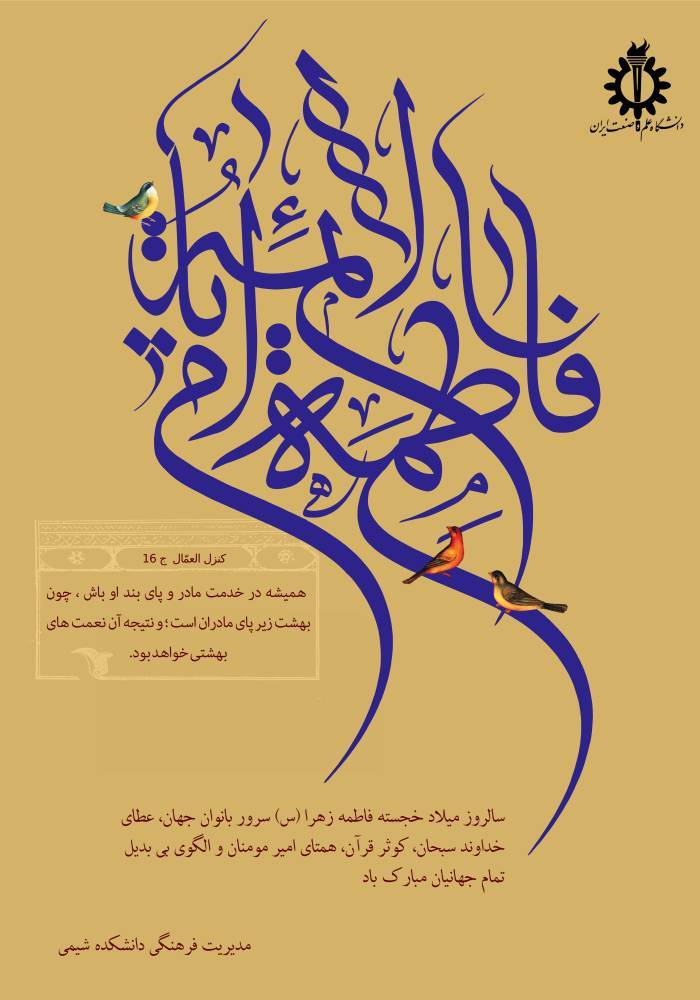 دانشگاه علم و صنعت ایران
یا فاطمة
ام الأئمة
کنزل العمّال ج 16
همیشه در خدمت مادر و پای بند او باش ، چون
بهشت زیر پای مادران است ؛ و نتیجه آن نعمت های
بهشتی خواهد بود.
سالروز میلاد خجسته فاطمه زهرا (س) سرور بانوان جهان، عطای
خداوند سبحان، کوثر قرآن، همتای امیر مومنان و الگوی بی بدیل
تمام جهانیان مبارک باد
مدیریت فرهنگی دانشکده شیمی